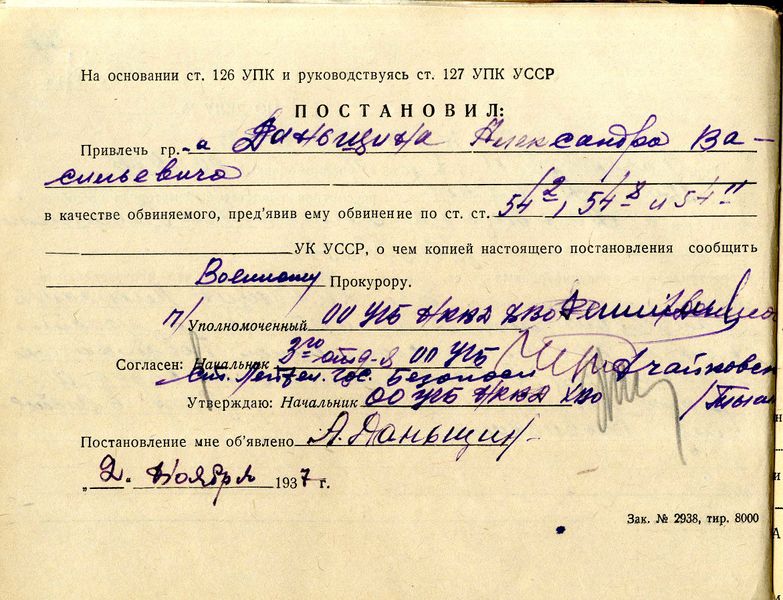 На основании ст. 126 УПК и руководствуясь ст. 127 УПК УССР
ПОСТАНОВИЛ:
Привлечь гр.-а Даньщина Александра Ва-
сильевича
в качестве обвиняемого, пред'явив ему обвинение по ст. ст. 54-2, 54-8 и 54-11
УК УССР, о чем копией настоящего постановления сообщить
Военному Прокурору.
П/Уполномоченный ОО УГБ НКВД ХВО
Согласен: Начальник 3го отд-я ОО УГБ
Ст. Лейтен. Гос. Безопасн
Утверждаю: Начальник ОО УГБ НКВД ХВО
Постановление мне об'явлено А. Даньщин
„2" Ноября 1937 г.
Зак. № 2938, тир. 8000